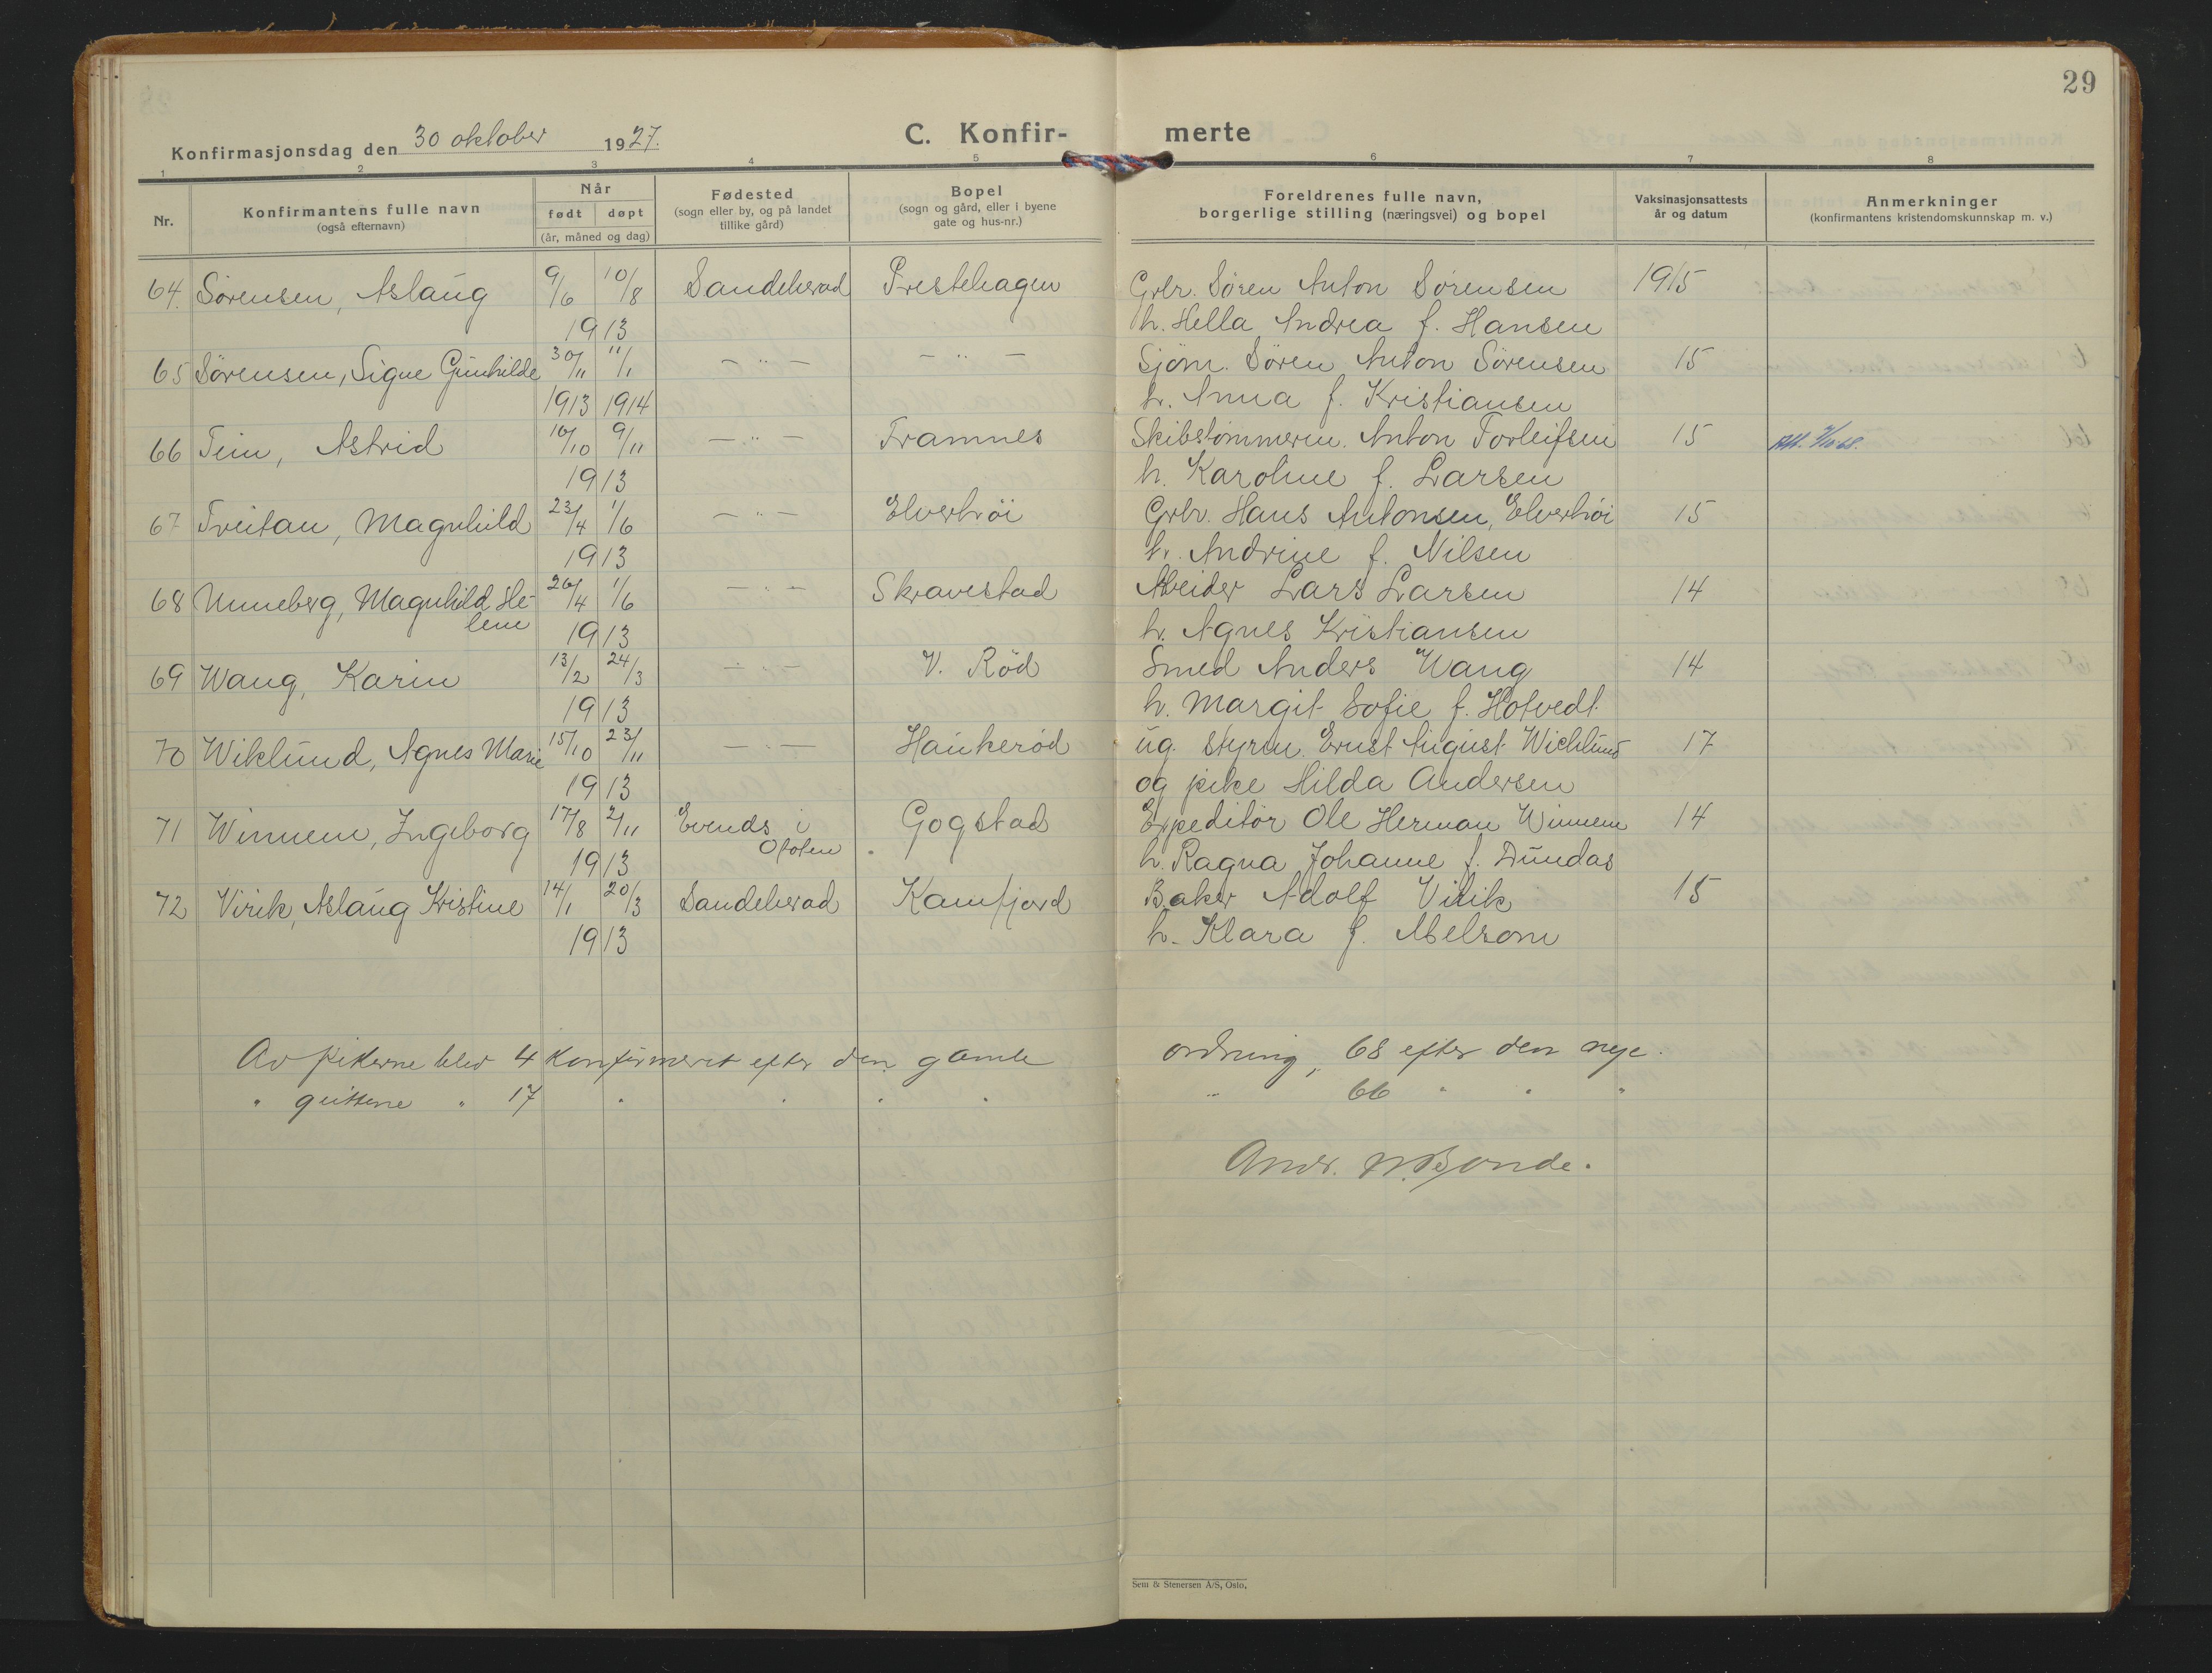 29
Konfirmasjonsdag den 30 oktober 1927.
C. Konfir- merte
1 2 3 4 5 6 7 8
Nr.
Konfirmantens fulle navn
(også efternavn)
Når
født døpt
(år, måned og dag)
Fødested
(sogn eller by, og på landet
tillike gård)
Bopel
(sogn og gård, eller i byene
gate og hus-nr.)
Foreldrenes fulle navn,
borgerlige stilling (næringsvei) og bopel
Vaksinasjonsattests
år og datum
Anmerkninger
(konfirmantens kristendomskunnskap m. v.)
64. Sørensen, Aslaug 9/6 10/8 Sandeherad Prestehagen Grbr. Søren Anton Sørensen 1915
1913 h. Hella Andrea f. Hansen
65 Sørensen, Signe Gunhilde 30/11 11/1 — " — — " — Sjøm. Søren Anton Sørensen 15
1913 1914 h. Anna f. Kristiansen
66 Tein, Astrid 10/10 9/11 — " — Framnes Skibstømmerm. Anton Torleifsen 15
1913 h. Karoline f. Larsen
67 Treitau, Magnhild 23/4 1/6 — " — Elverhøi Grbr. Hans Antonsen, Elverhøi 15
1913 h. Andrine f. Nilsen
68 Unneberg, Magnhild He- 26/4 1/6 — " — Skravestad Arbeider Lars Larsen 14
lene 1913 h. Agnes Kristiansen
69 Wang, Karin 13/2 24/3 — " — V. Rød Smed Anders Wang 14
1913 h. Margit Sofie f. Hotvedt
70 Wiklund, Agnes Marie 15/10 23/11 — " — Haukerød ug. styrm. Ernst August Wichlund 17
1913 og pike Hilda Andersen
71 Winnem, Ingeborg 17/8 2/11 i Ofoten Gogstad Expeditør Ole Herman Winnem 14
1913 h. Ragna Johanne f. Dundas
72 Virik, Aslaug Kristine 14/1 20/3 Sandeherad Kamfjord Baker Adolf Virik 15
1913 h. Klara f. Abelsom
Av pikerne blev 4 konfirmeret efter den gamle ordning, 68 efter den nye.
" guttene " 17 " " " " " 66 " " "
Andr. N. Bonde.
Sem & Stenersen A/S, Oslo,